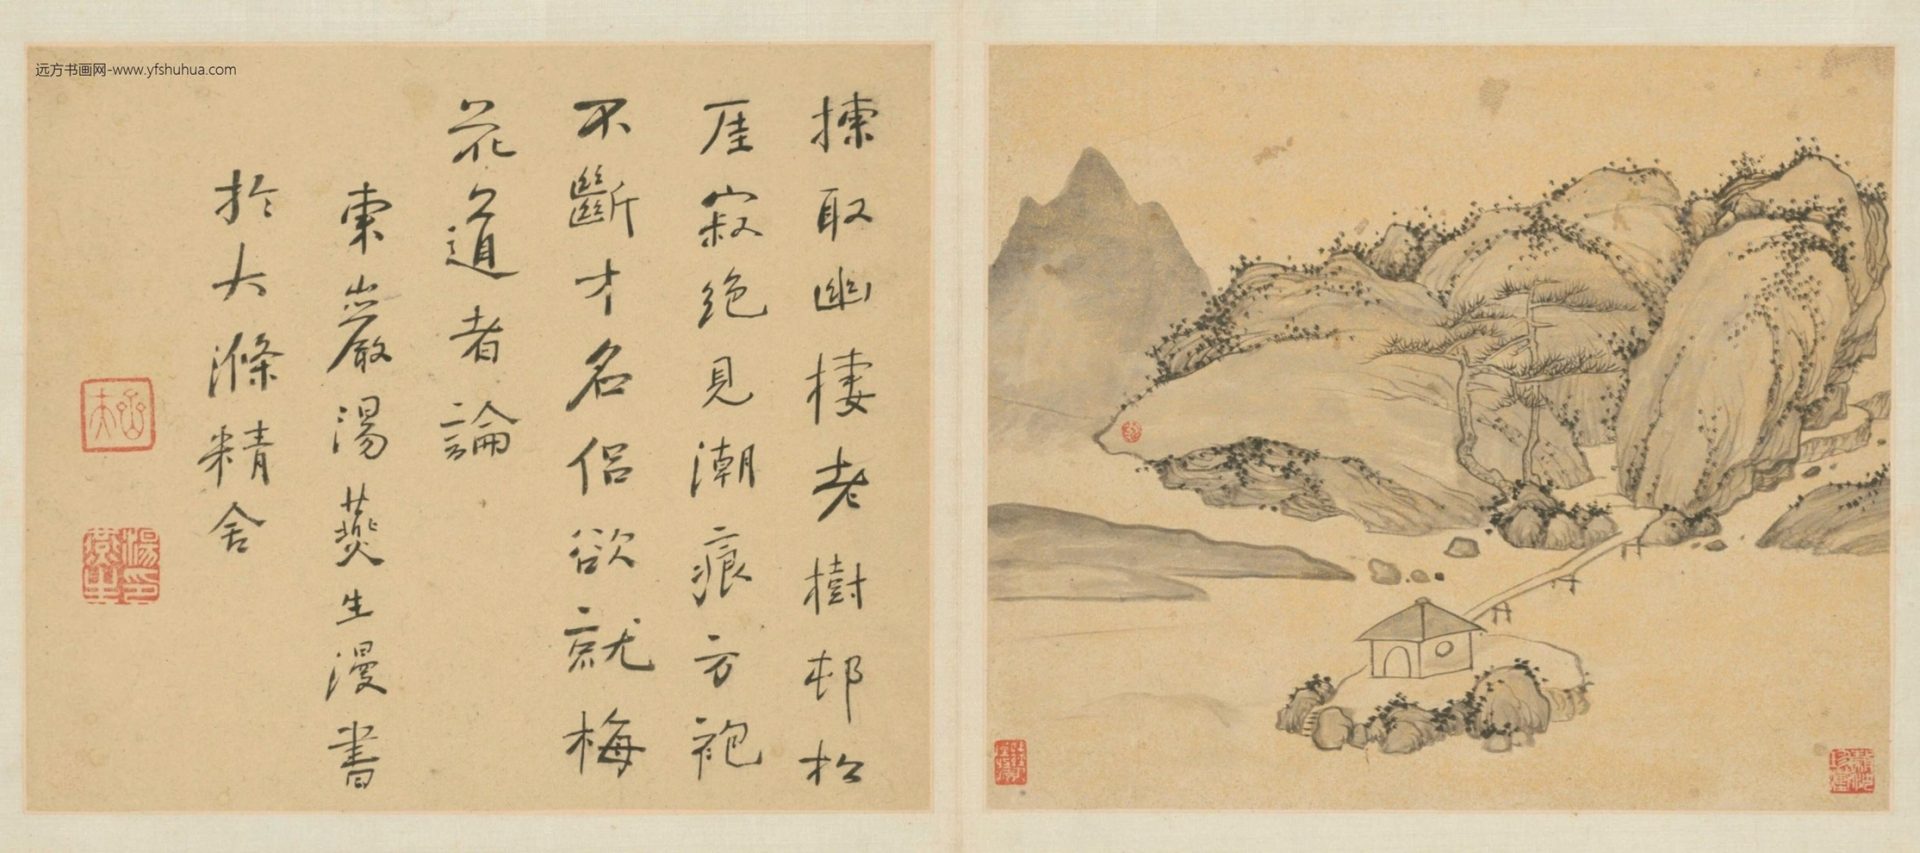 远方书画网-www.yfshuhua.com
揀取幽棲老樹邨松
厓寂絶見潮痕方袍
不斷才名侣欲就梅
花道者論
東巖湯燕生漫書
於大滌精舍